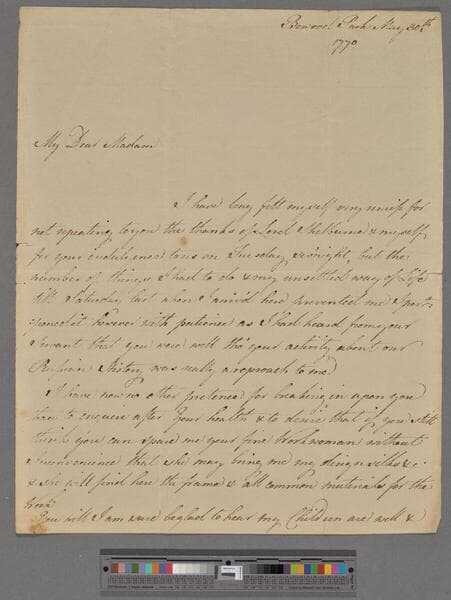 Bowood Park May 30th
1770
My Dear Madam
I have long felt myself very remiss for
not repeating to you the thanks of Lord Shelburne & myself
for your indulgence to us on Tuesday se'nnight, but the
number of things I had to do & my unsettled way of Life
till Saturday last when I arriv'd here prevented me I post-
-poned it however with patience as I had heard from your
Servant that you were well tho' your activity about our
Russian was really a reproach to me
I have now no other pretence for breaking in upon you
than to enquire after Your health & to desire that if you still
think you can spare me your fine Workwoman without
Inconvenience that she may bring me my design silks &c.
& she will find here the frame & all common materials for the
Work
You will I am sure be glad to hear my Children are well &